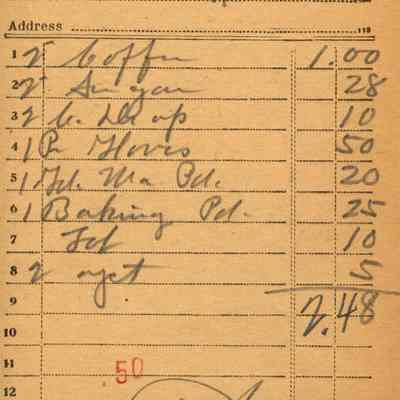 Address
1 2 Coffee 1.00
2 2 Sugar 28
3 2 C. Soap 10
4 1 Pr Gloves 50
5 1 Pd. 20
6 1 Baking Pd. 25
7 10
8 2 5
9 2.48
10
11 50
12